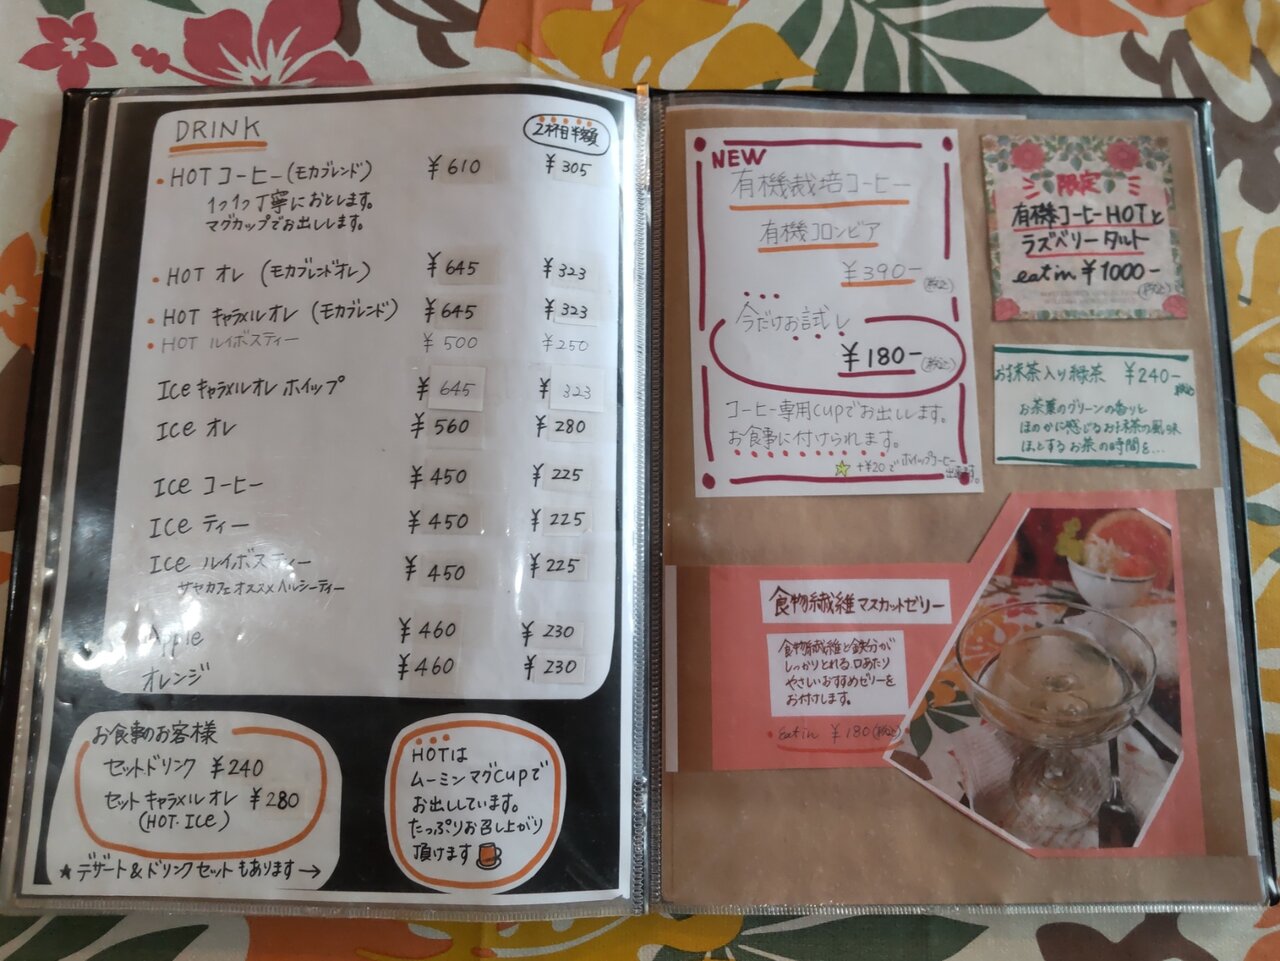 DRINK
2杯目半額
HOT コーヒー (モカブレンド) ¥610 ¥305
1つ1つ丁寧におとします。
マグカップでお出しします。
HOT オレ (モカブレンドオレ) ¥645 ¥323
HOT キャラメルオレ (モカブレンド) ¥645 ¥323
HOT ルイボスティー ¥500 ¥250
Ice キャラメルオレ ホイップ ¥645 ¥323
Ice オレ ¥560 ¥280
Ice コーヒー ¥450 ¥225
Ice ティー ¥450 ¥225
Ice ルイボスティー ¥450 ¥225
ザヤカフェオススメヘルシーティー
Apple ¥460 ¥230
オレンジ ¥460 ¥230
お食事のお客様
セットドリンク ¥240
セットキャラメルオレ ¥280
(HOT・ICe)
★デザート&ドリンクセットもあります→
HOTは
ムーミンマグCupで
お出ししています。
たっぷりお召し上がり
頂けます
NEW
有機栽培コーヒー
有機コロンビア
¥390-
(税込)
今だけお試し
¥180-(税込)
コーヒー専用cupでお出しします。
お食事に付けられます。
☆+¥20でホイップコーヒー
出来ます。
限定
有機コーヒーHOTと
ラズベリータルト
eat in ¥1000-
(税込)
お抹茶入り緑茶 ¥240-
税込
お茶葉のグリーンの香りと
ほのかに感じるお抹茶の風味
ほっとするお茶の時間を…
食物繊維マスカットゼリー
食物繊維と鉄分が
しっかりとれる、口あたり
やさしいおすすめゼリーを
お付けします。
eat in ¥180(税込)